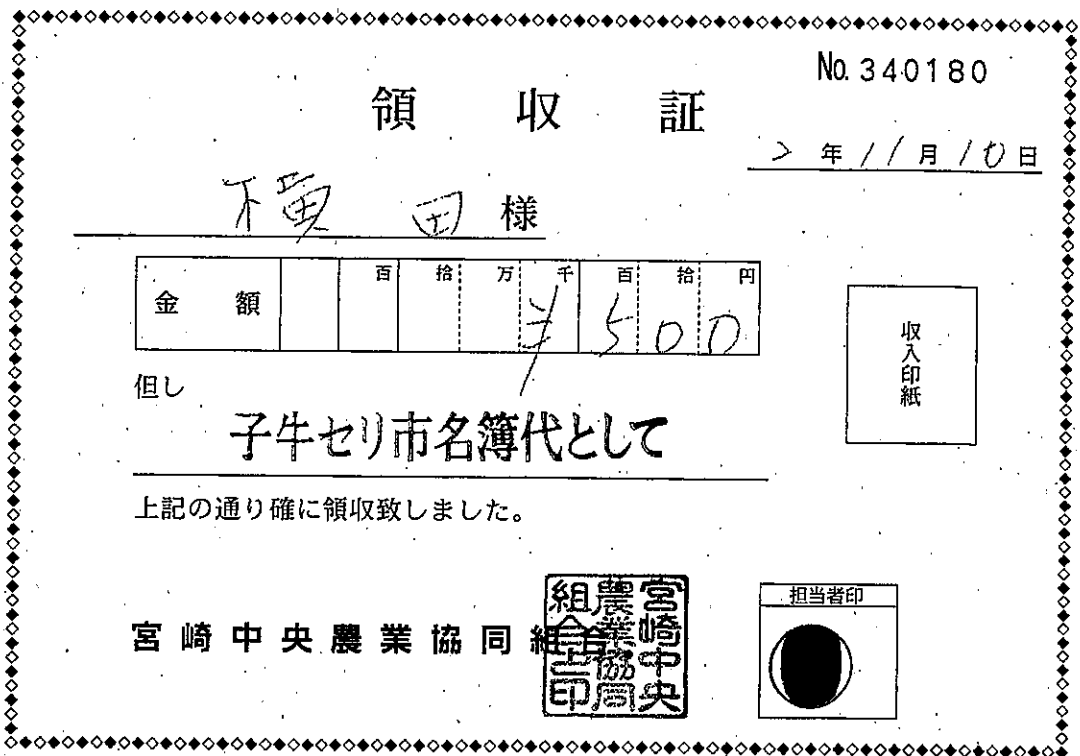 No.340180
領収証
2年11月10日
横田様
金額 百拾万千百拾円
¥500
収入印紙
但し
子牛セリ市名簿代として
上記の通り確に領収致しました。
宮崎中央農業協同組合
宮崎中央農業協同組合之印
担当者印